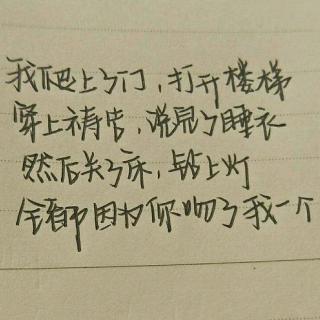 我爬上了门，打开楼梯
穿上祷告，说完了睡衣
然后关了床，钻上灯
全都因为你吻了我一个